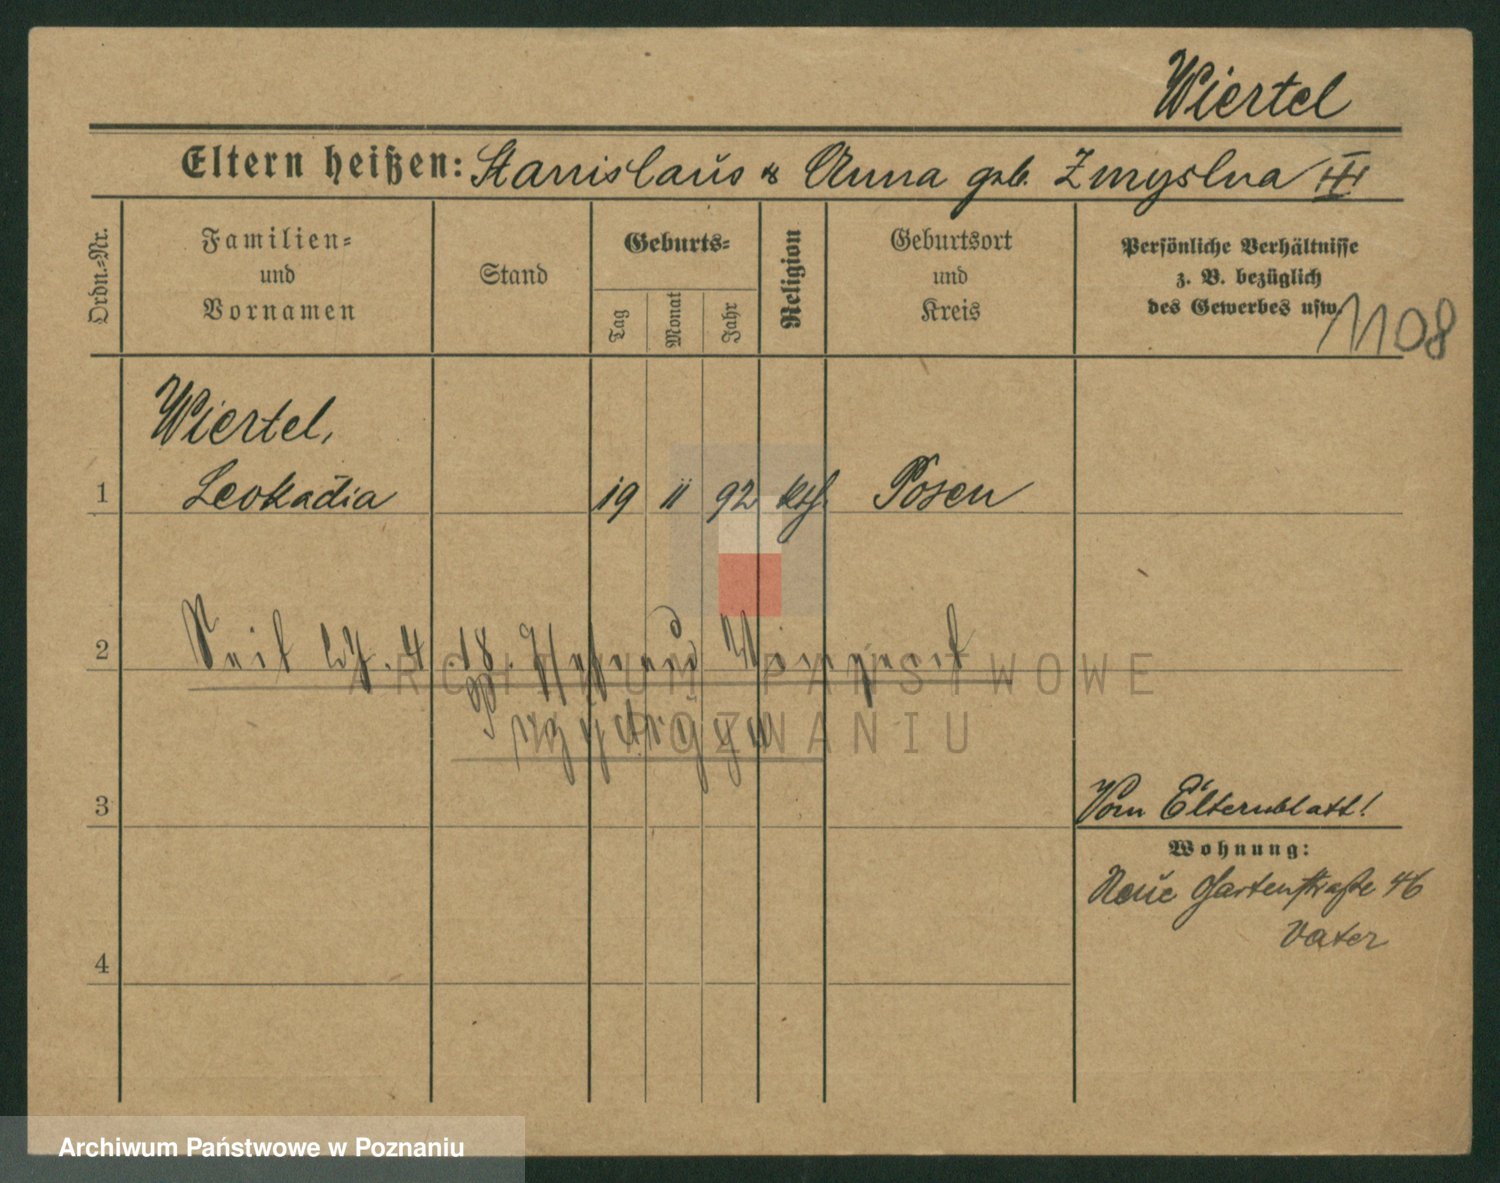 Wiertel
Eltern heißen: Stanislaus & Anna geb. Zmyslna III
Ordn.-Nr.
Familien-
und
Vornamen
Stand
Geburts-
Tag
Monat
Jahr
Religion
Geburtsort
und
Kreis
Persönliche Verhältnisse
z. B. bezüglich
des Gewerbes usw.
1108
Wiertel,
1 Leokadia 19 11 92 kth. Posen
2 Seit 4.18.
ARCHIWUM PAŃSTWOWE
W POZNANIU
3
Vom Elternblatt!
Wohnung:
Neue Gartenstraße 46
Vater
4
Archiwum Państwowe w Poznaniu